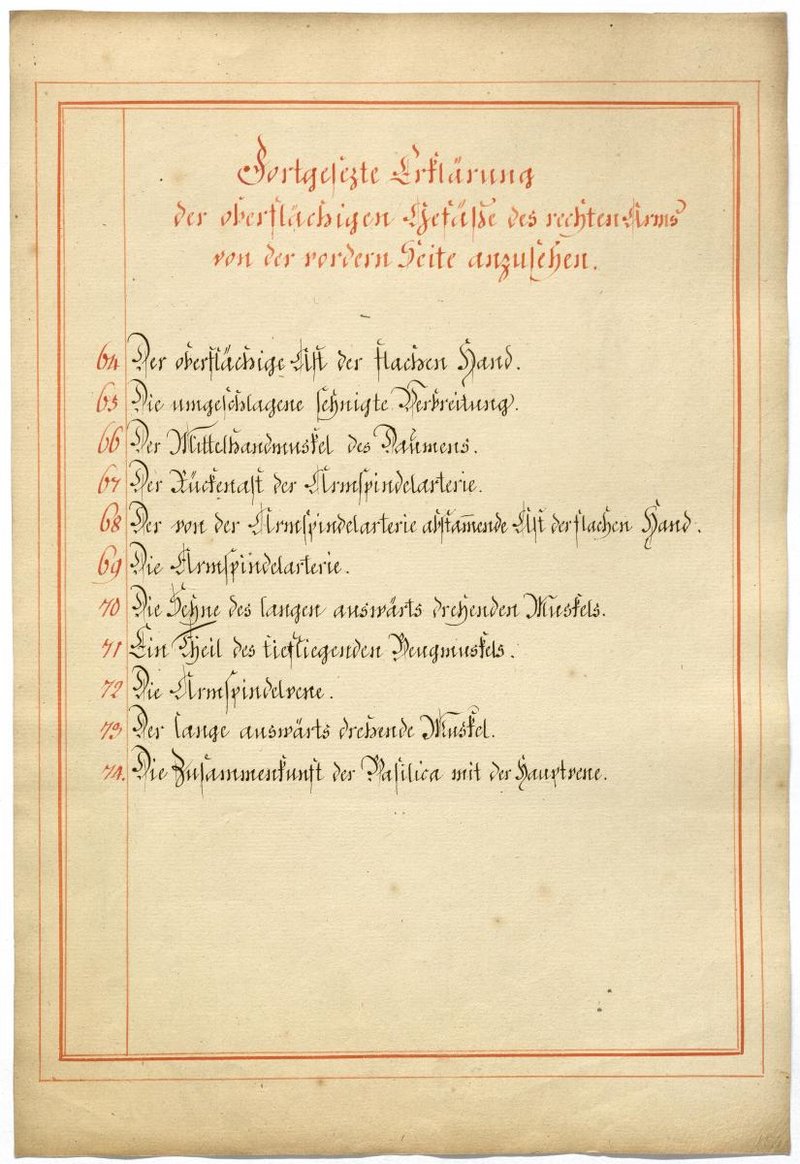 Fortgesezte Erklärung
der oberflächigen Gefäße des rechten Arms
von der vordern Seite anzusehen.
64 Der oberflächige Ast der flachen Hand.
65 Die umgeschlagene sehnigte Verbreitung.
66 Der Mittelhandmuskel des Daumens.
67 Der Rückenast der Armspindelarterie.
68 Der von der Armspindelarterie abstam̅ende Ast der flachen Hand.
69 Die Armspindelarterie.
70 Die Sehne des langen auswärts drehenden Muskels.
71 Ein Theil des tiefliegenden Beugmuskels.
72 Die Armspindelvene.
73 Der lange auswärts drehende Muskel.
74. Die Zusammenkunft der Basilica mit der Hauptvene.